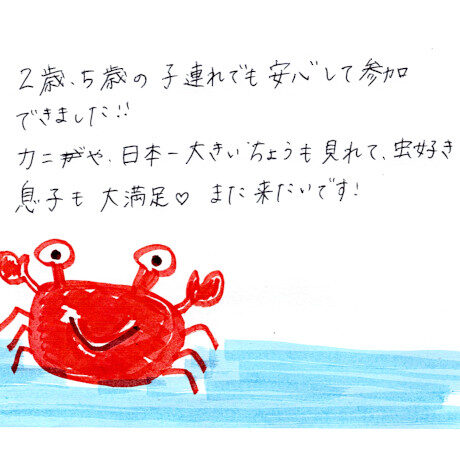 2歳、5歳の子連れでも安心して参加
できました!!
カニや、日本一大きいちょうも見れて、虫好き
息子も大満足♡ また来たいです!